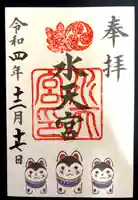 奉拝
水天宮
令和四年十二月十七日